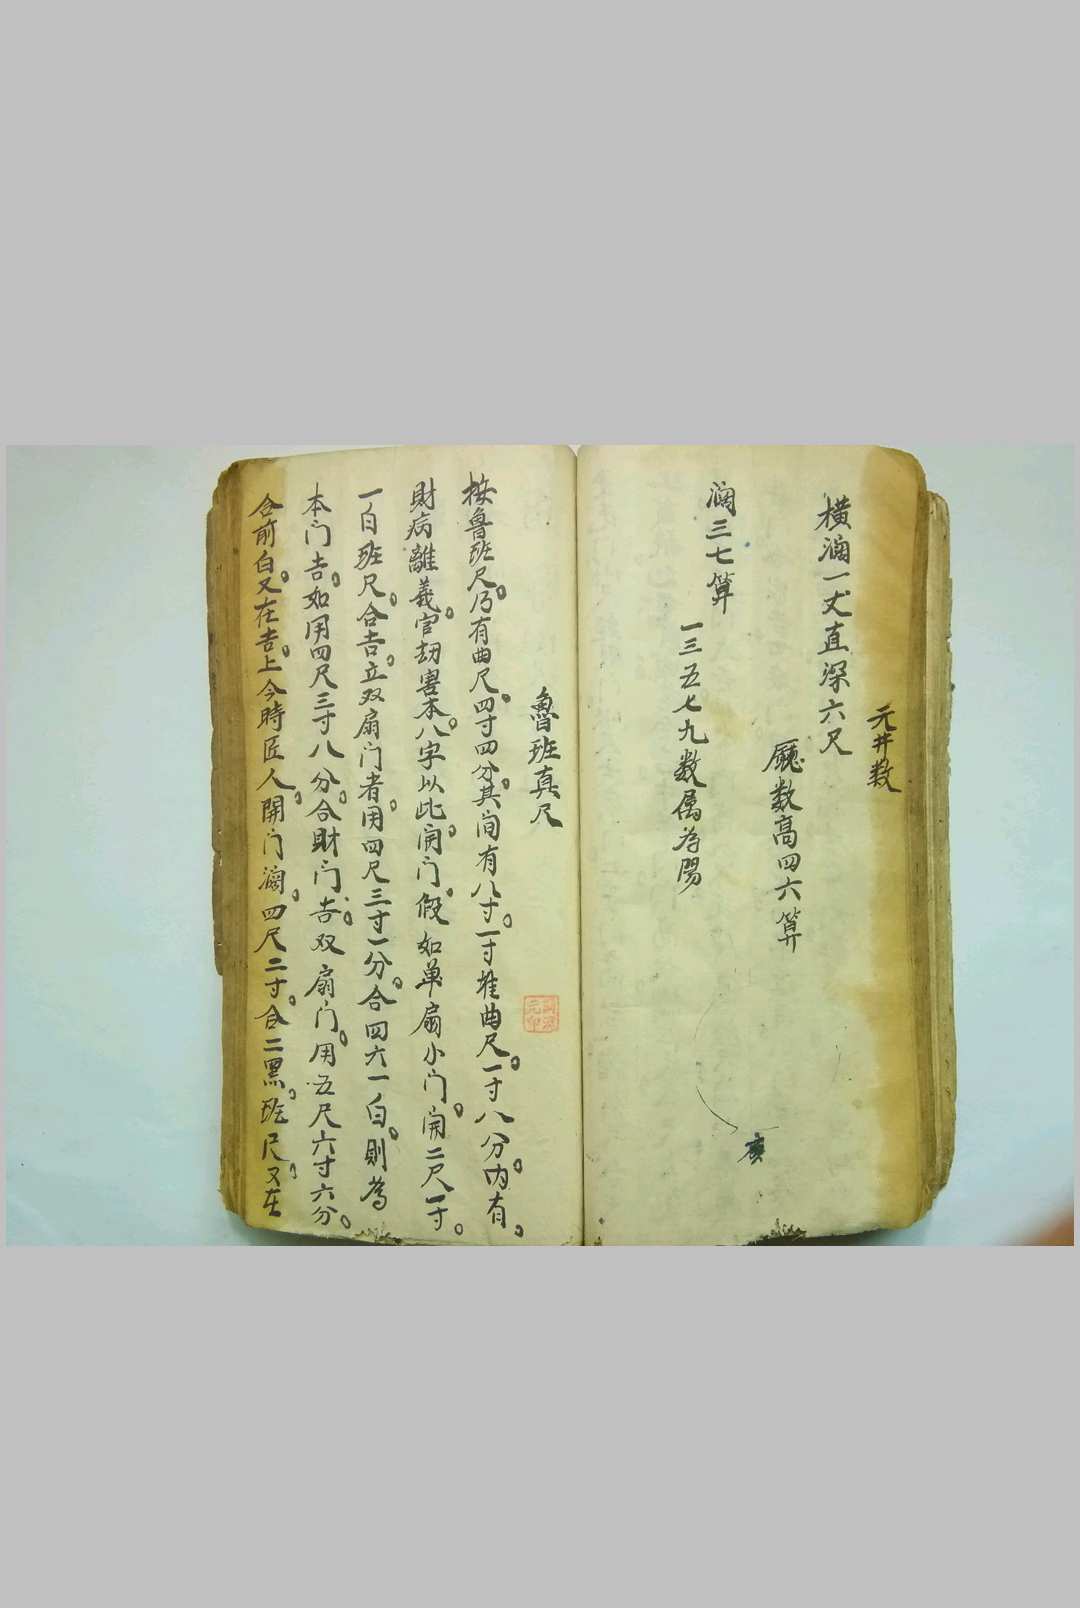 元井数
橫濶一丈直深六尺
廳数高四六算
濶三七算
一三五七九数属为陽
魯班真尺
按魯班尺。乃有曲尺。四寸四分。其间有八寸。一寸推曲尺。一寸八分。内有。
財病離義。官刼害本。八字以此。開门。假如单扇小门。開二尺一寸。
一白班尺。合吉立。双扇门者。用四尺三寸一分。合四六一白。則為
本门吉。如用四尺三寸八分。合財门吉。双扇门。用五尺六寸六分。
合前白。又在吉。上今時匠人。開门濶。四尺二寸。合二黑。班尺。又在